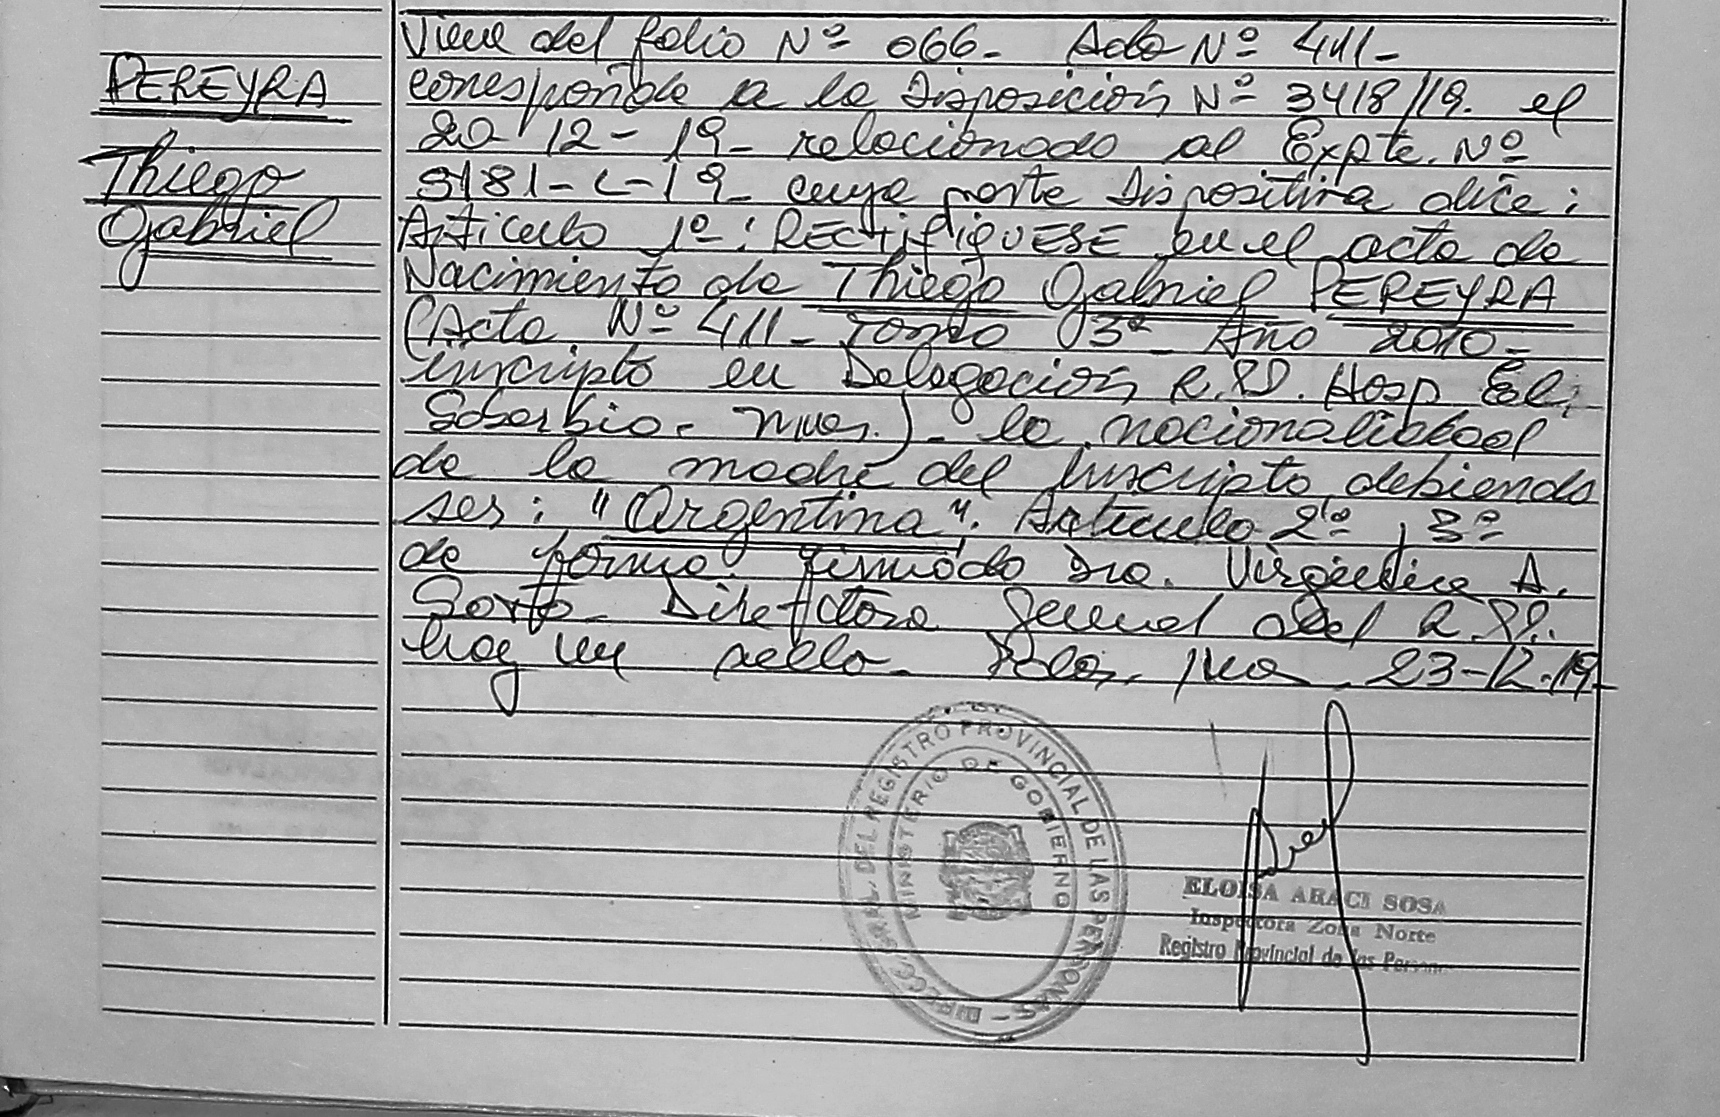 PEREYRA
Thiego
Gabriel
Viene del folio Nº 066- Acta Nº 411-
corresponde a la Disposición Nº 3418/19. el
20-12-19- relacionado al Expte. Nº
3181-C-19- cuya parte Dispositiva dice:
Artículo 1º: RECTIFIQUESE en el acta de
Nacimiento de Thiego Gabriel PEREYRA
(Acta Nº 411- Tomo 03º- Año 2010-
inscripto en Delegación R.PP. Hosp El
Soberbio- Mnes.)- la nacionalidad
de la madre del inscripto, debiendo
ser: "Argentina". Artículo 2º, 3º
de forma. firmado Dra. A.
Directora General del R.PP.
hay un sello- 23-12-19-
DIRECC. GRAL. DEL REGISTRO PROVINCIAL DE LAS PERSONAS -
MINISTERIO DE GOBIERNO
ELOISA ARACI SOSA
Inspectora Zona Norte
Registro Provincial de las Person